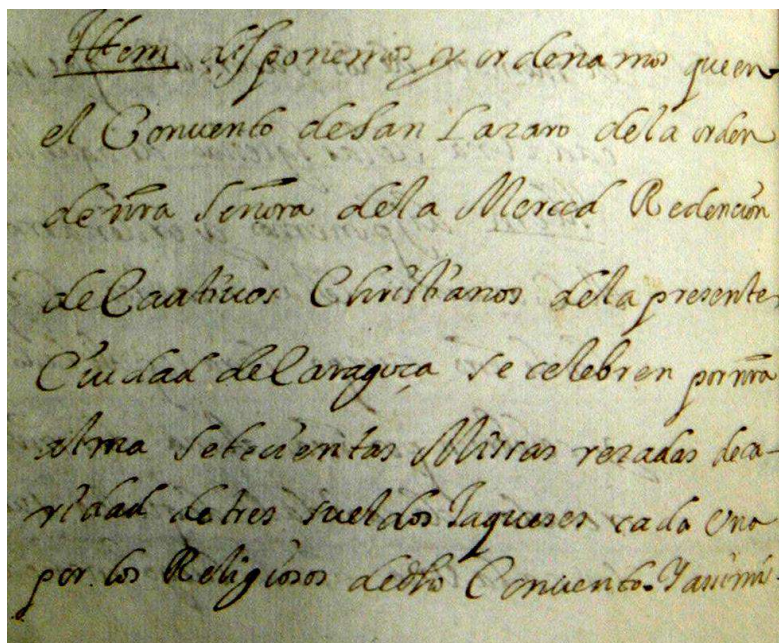 Ittem disponemos y ordenamos que en
el Conuento de San Lazaro de la orden
de nra Senora de la Merced Redencion
de Cautiuos Christianos de la presente
Ciudad de Caragoça se celebren por nra
alma setecientas Missas rezadas de ca-
ridad de tres sueldos Jaqueses cada Una
por los Religiosos de dho Conuento. Y assimi-